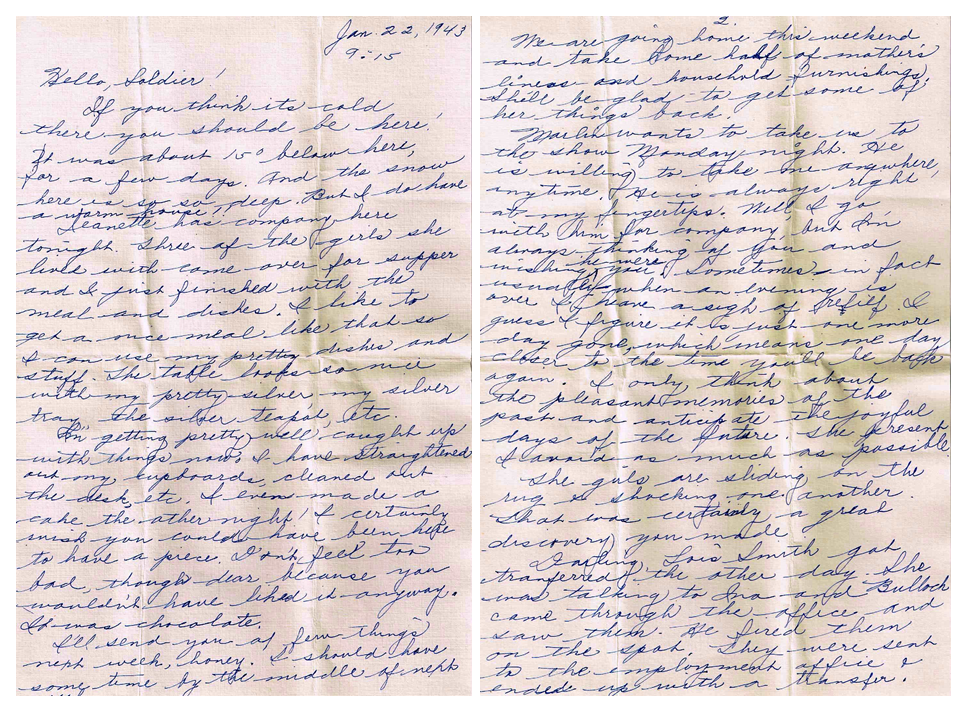 Jan. 22, 1943
9:15
Hello, Soldier!
If you think its cold
there you should be here!
It was about 15° below here,
for a few days. And the snow
here is so so deep. But I do have
a warm house!!
Jeanette has company here
tonight. Three of the girls she
lived with came over for supper
and I just finished with the
meal and dishes. I like to
get a nice meal like that so
I can use my pretty dishes and
stuff. The table looks so nice
with my pretty silver, my silver
tray, the silver teapot, etc.
I'm getting pretty well caught up
with things now. I have straightened
out my cupboards, cleaned out
the desk, etc. I even made a
cake the other night! I certainly
wish you could have been here
to have a piece. Don't feel too
bad, though dear because you
wouldn't have liked it anyway.
It was chocolate.
I'll send you a few things
next week, honey. I should have
some time by the middle of next
2.
We are going home this weekend
and take home half of mother's
lineas and household furnishings.
She'll be glad to get some of
her things back.
Marlin wants to take us to
the show Monday night. He
is willing to take me anywhere,
anytime. He is always right
at my fingertips. Well I go
with him for company but I'm
always thinking of you and
wishing he were
you. Sometimes in fact
usually when an evening is
over I heave a sigh of relief. I
guess I figure it is just one more
day gone, which means one day
closer to the time you'll be back
again. I only think about
the pleasant memories of the
past and anticipate the joyful
days of the future. The present
I avoid as much as possible.
The girls are sliding on the
rug & shocking one another.
That was certainly a great
discovery you made.
Darling, Lois Smith got
transferred the other day. She
was talking to Ina and Bullock
came through the office and
saw them. He fired them
on the spot. They were sent
to the employment office &
ended up with a transfer.